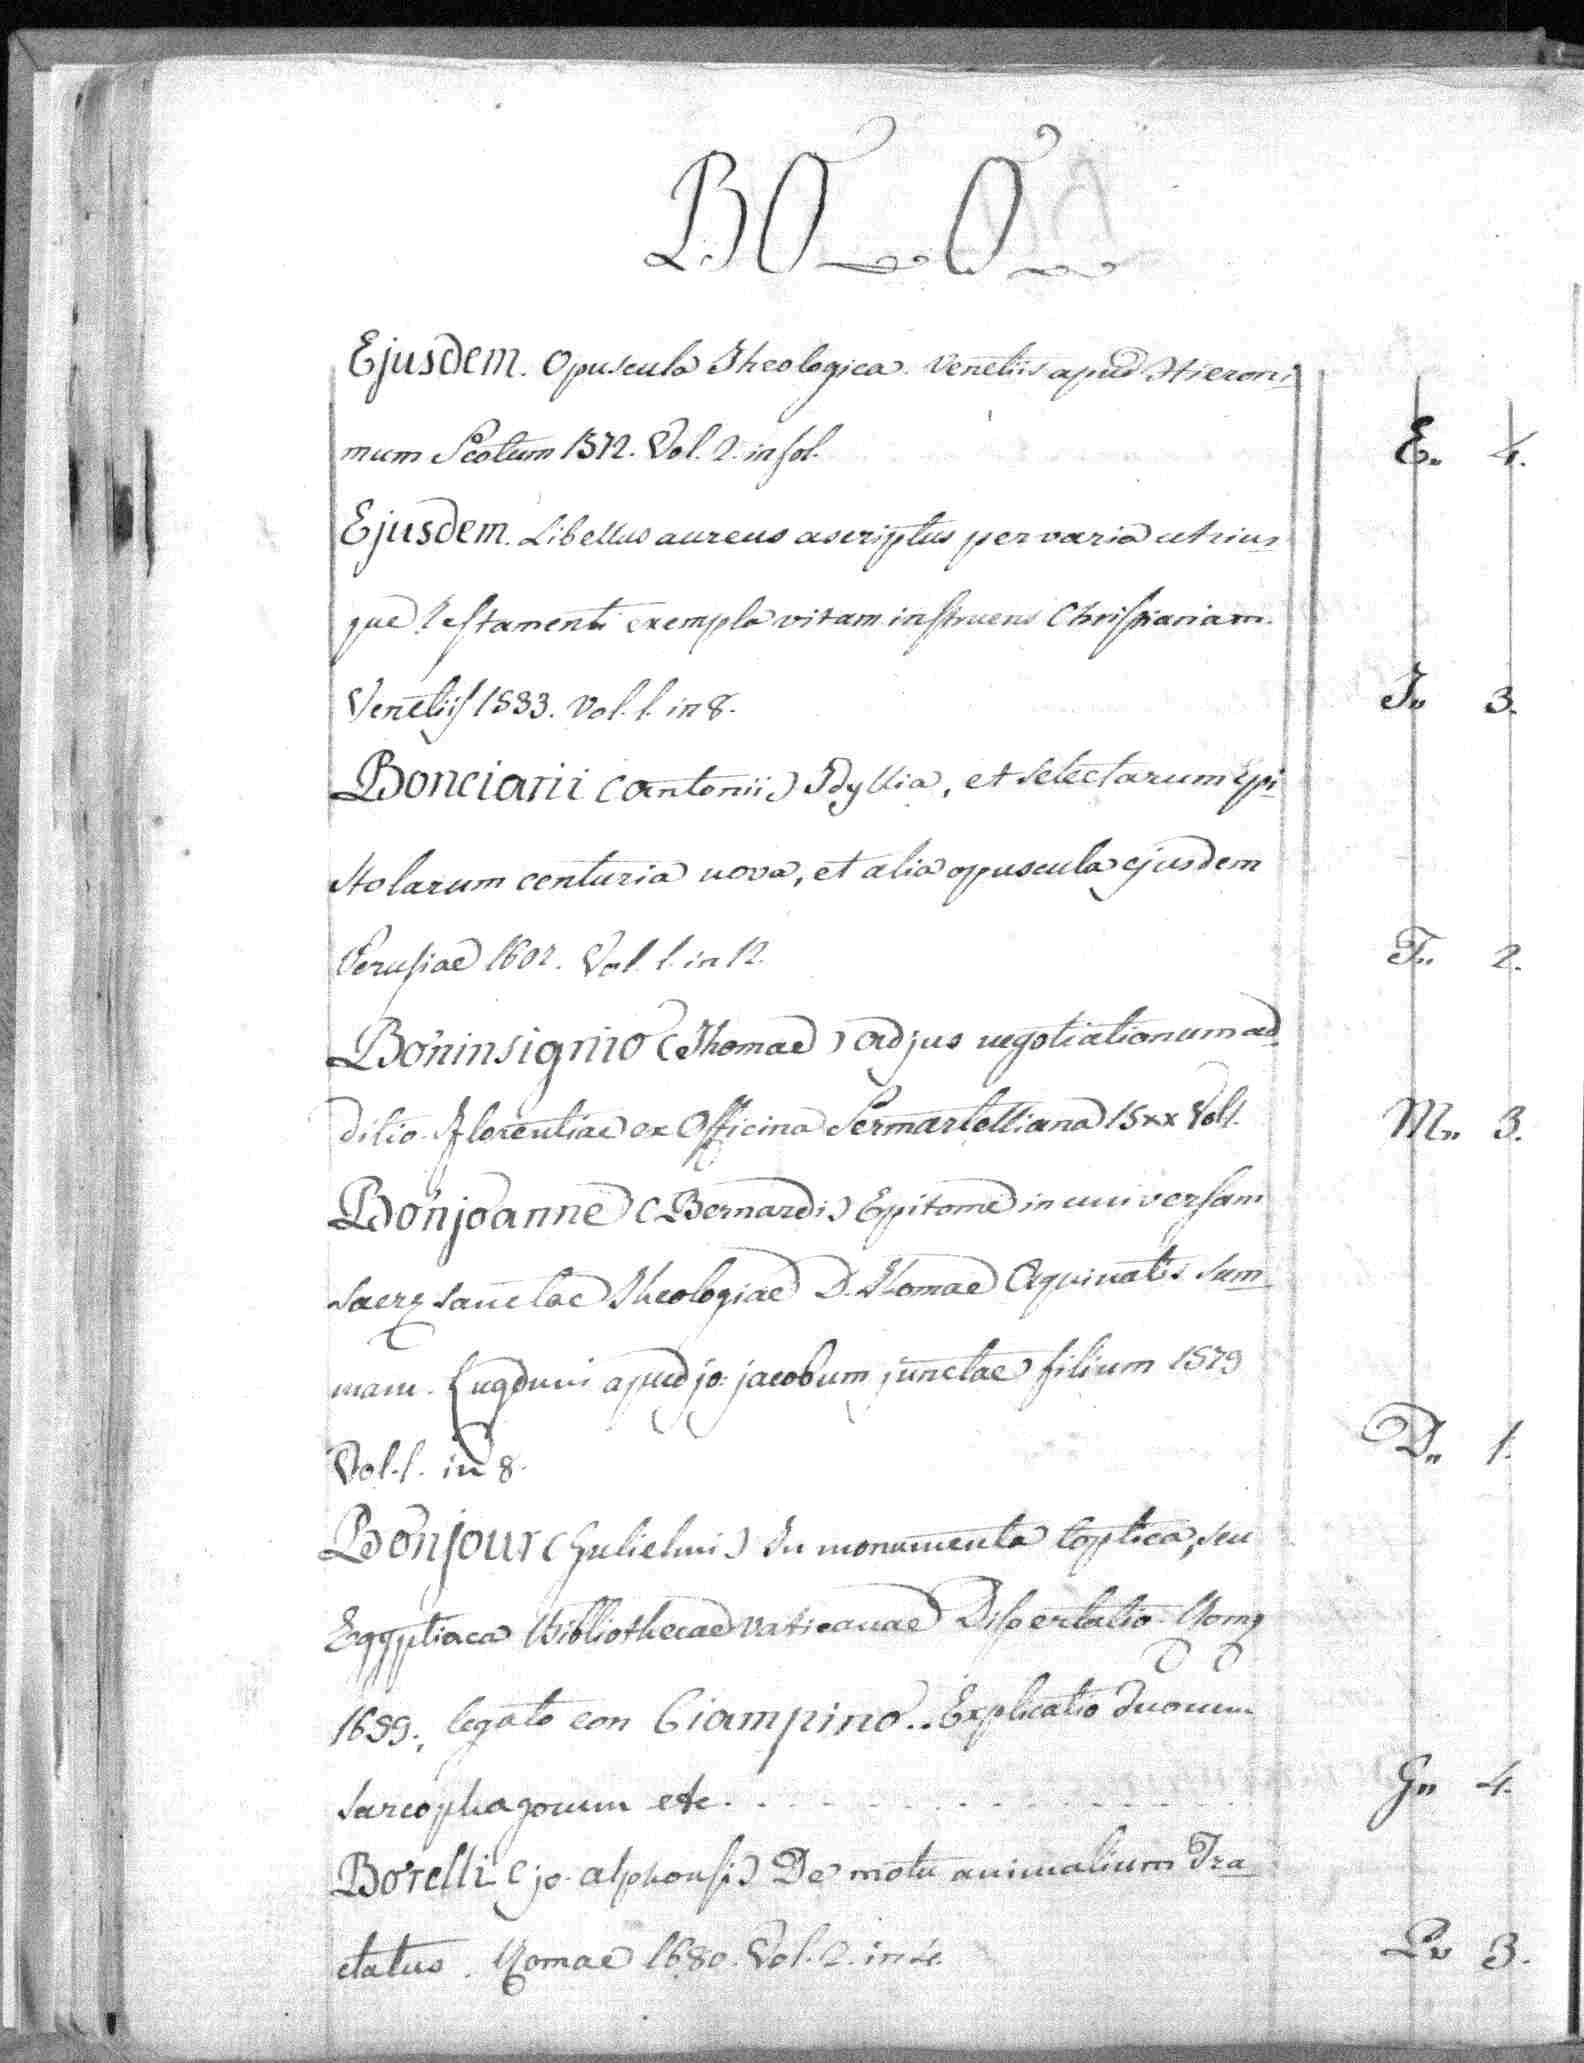 BO O
Ejusdem. Opuscula Theologica. Venetiis apud Hieroni
mum Scotum 1572. Vol. 2. in fol. E. 4.
Ejusdem. Libellus aureus ascriptus per varia utrius
que Testamenti exempla vitam instruens Christianam.
Venetiis 1533. Vol. 1. in 8. I. 3.
Bonciarii (Antonii) Idyllia, et selectarum Epi
stolarum centuria nova, et alia opuscula ejusdem
Perusiae 1602. Vol. 1. in 12. T. 2.
Boninsignio (Thomae) Ad jus negotiationum ad
ditio. Florentiae ex Officina Sermartelliana 15xx Vol 1. M. 3.
Bonjoanne (Bernardi) Epitome in universam
sacrę sanctae Theologiae D. Thomae Aquinatis Sum
mam. Lugduni apud jo: jacobum junctae filium 1579
Vol. 1. in 8. D. 1.
Bonjour (Gulielmi) In monumenta Coptica, seu
Egyptiaca Bibliothecae Vaticanae Dissertatio. Romę
1699., legato con Ciampino.. Explicatio duorum
sarcophagorum etc. . . . . . . . . . . . . . . . . G. 4.
Borelli (jo. Alphonsi) De motu animalium Tra
ctatus. Romae 1680. Vol. 2. in 4. L. 3.